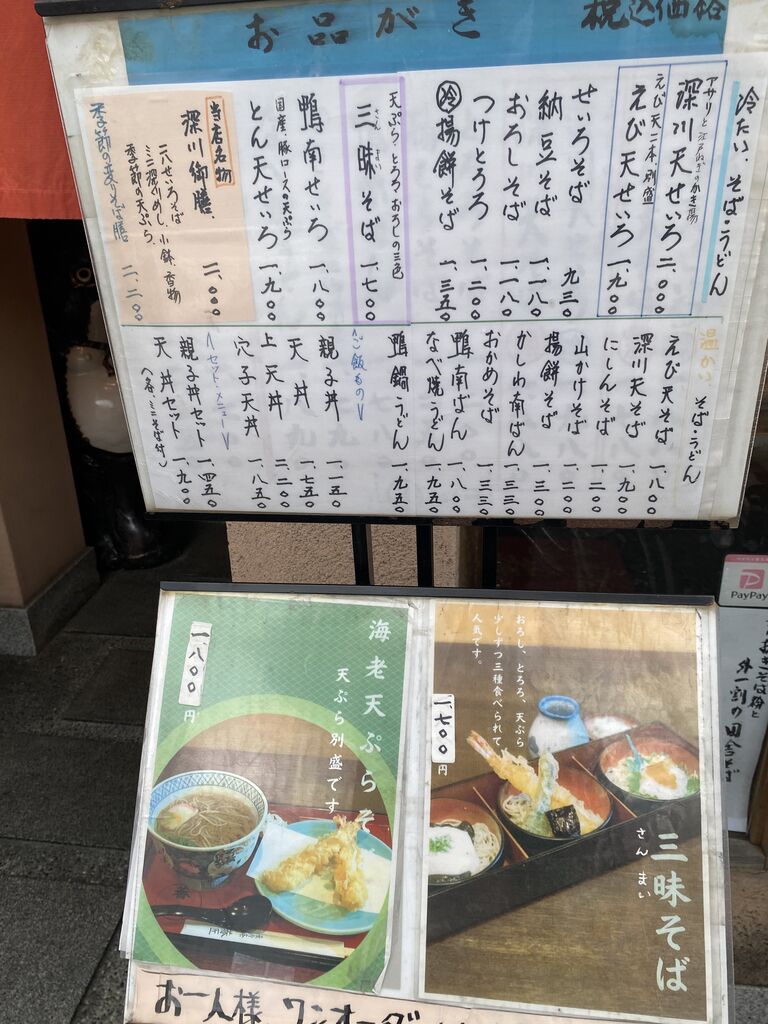 お品がき
税込価格
冷たい、そば・うどん
アサリと江戸ねぎのかき揚
深川天せいろ 二、〇〇〇
えび天二本別盛
えび天せいろ 一、九〇〇
せいろそば 九三〇
納豆そば 一、一八〇
おろしそば 一、一八〇
つけとろろ 一、二〇〇
冷揚餅そば 一、三五〇
天ぷら、とろろ、おろしの三色
三昧そば 一、七〇〇
さん まい
鴨南せいろ 一、八〇〇
国産、豚ロースの天ぷら
とん天せいろ 一、九〇〇
当店名物
深川御膳、 二、〇〇〇
二八せいろそば
ミニ深川めし、小鉢、香物
季節の天ぷら、
季節の変りそば膳 二、二〇〇
温かい、そば・うどん
えび天そば 一、八〇〇
深川天そば 一、九〇〇
にしんそば 一、二〇〇
山かけそば 一、二〇〇
揚餅そば 一、三〇〇
かしわ南ばん 一、三三〇
おかめそば 一、三三〇
鴨南ばん 一、八〇〇
なべ焼うどん 一、九五〇
鴨鍋うどん 一、九五〇
〈ご飯もの〉
親子丼 一、一五〇
天丼 一、七五〇
上天丼 二、二〇〇
穴子天丼 一、八五〇
〈セット・メニュー〉
親子丼セット 一、四五〇
天丼セット 一、九〇〇
〈各ミニそば付〉
海老天ぷらそ
天ぷら別盛です
一、八〇〇円
おろし、とろろ、天ぷら
少しずつ三種食べられて
人気です。
一、七〇〇円
三昧そば
さん まい
PayPay
外一割の田舎そば
お一人様、ワンオーダ